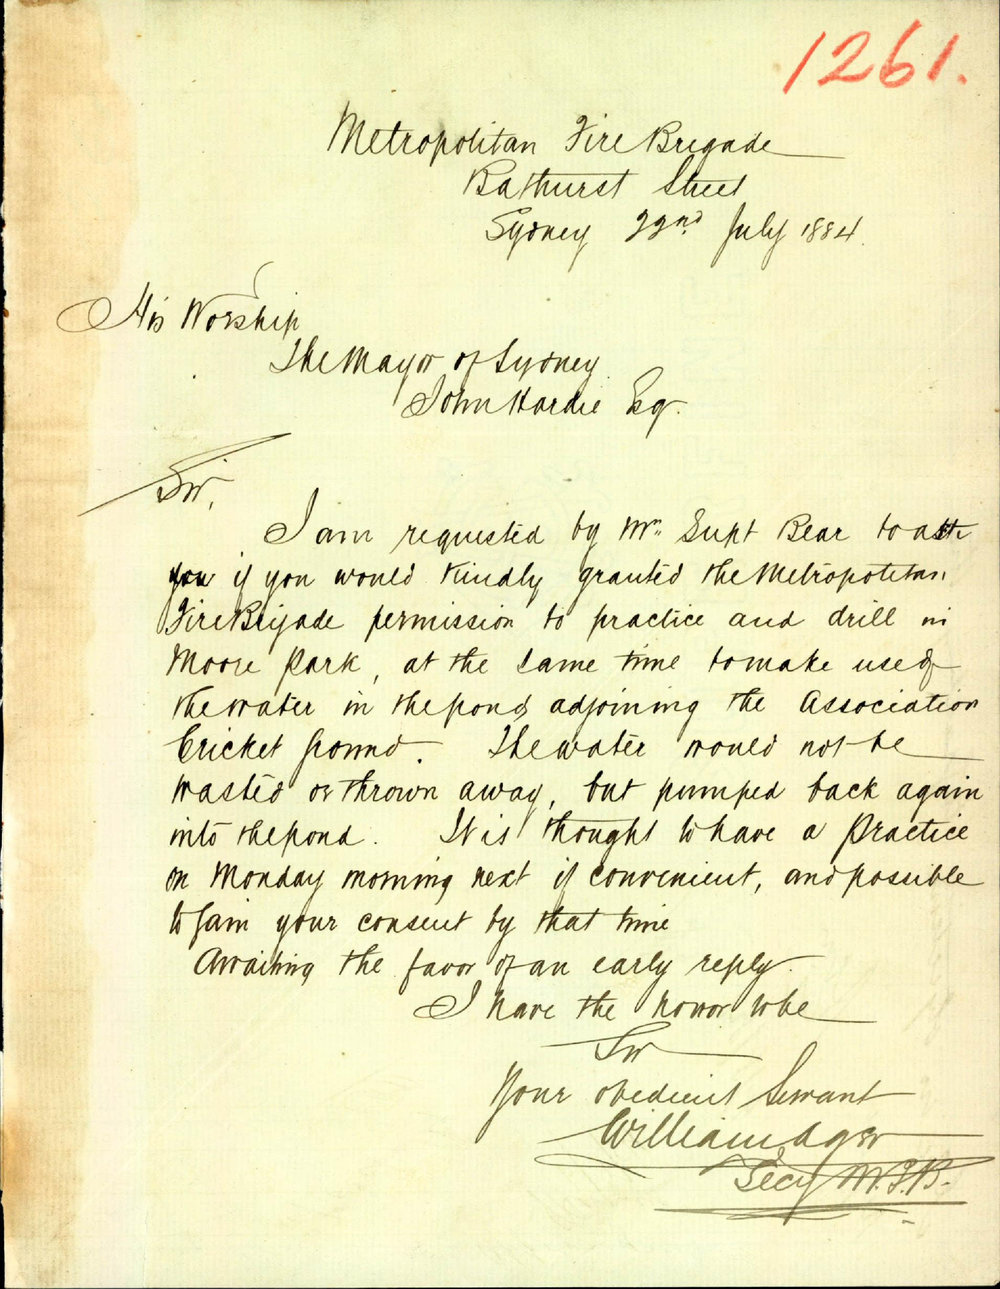 1261.
Metropolitan Fire Brigade
Bathurst Street
Sydney 22nd July 1884.
His Worship
The Mayor of Sydney
John Hardie Esq.
Sir,
I am requested by Mr. Supt Bear to ask
you if you would kindly granted the Metropolitan
Fire Brigade permission to practice and drill in
Moore Park, at the same time to make use of
the water in the pond adjoining the Association
Cricket Ground. The water would not be
wasted or thrown away, but pumped back again
into the pond. It is thought to have a Practice
on Monday morning next if convenient, and possible
to gain your consent by that time
Awaiting the favor of an early reply.
I have the honor to be
Sir
Your obedient Servant
William Ager
Secy M.F.B.